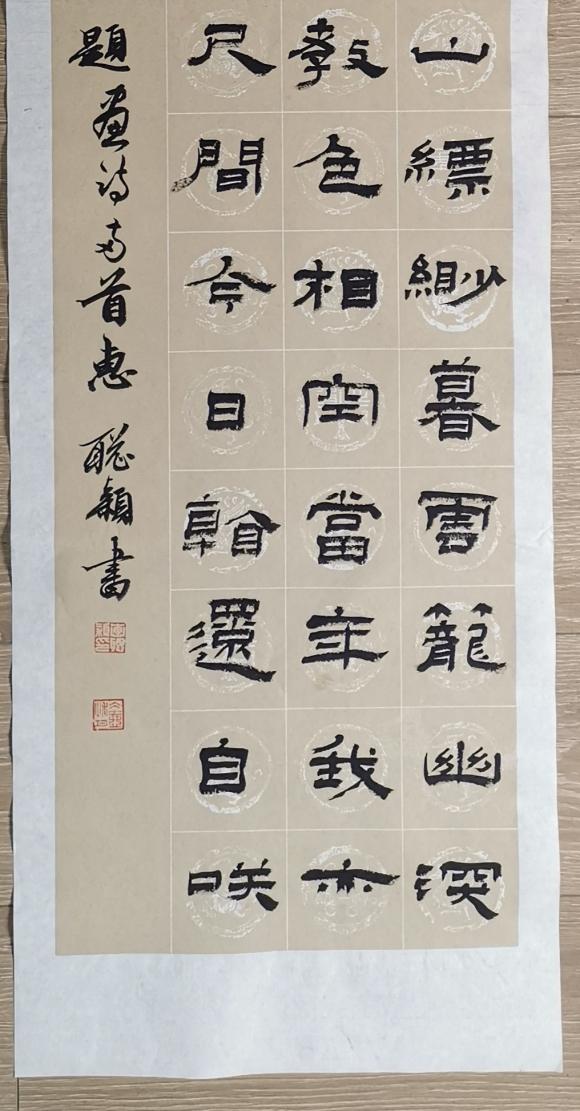 山縹緲暮雲籠幽深
教色相空當年我亦
尺間今日還自咲
題畫詩两首惠聰穎書